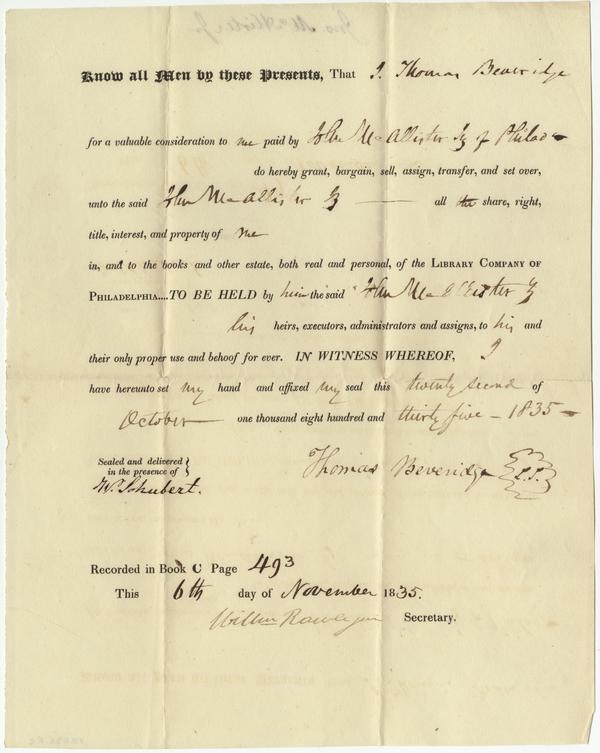 Know all Men by these Presents, That I Thomas Beveridge
for a valuable consideration to me paid by John McAllister Jr of Philad a
do hereby grant, bargain, sell, assign, transfer, and set over,
unto the said John McAllister Jr all the share, right,
title, interest, and property of me
in, and to the books and other estate, both real and personal, of the LIBRARY COMPANY OF
PHILADELPHIA....TO BE HELD by him the said John McAllister Jr
his heirs, executors, administrators and assigns, to his and
their only proper use and behoof for ever. IN WITNESS WHEREOF, I
have hereunto set my hand and affixed my seal this twenty second of
October one thousand eight hundred and thirty five - 1835 -
Sealed and delivered
in the presence of
Wm. Schubert.
Thomas Beveridge L.S.
Recorded in Book C Page 493
This 6th day of November 1835.
William Rawle jun Secretary.